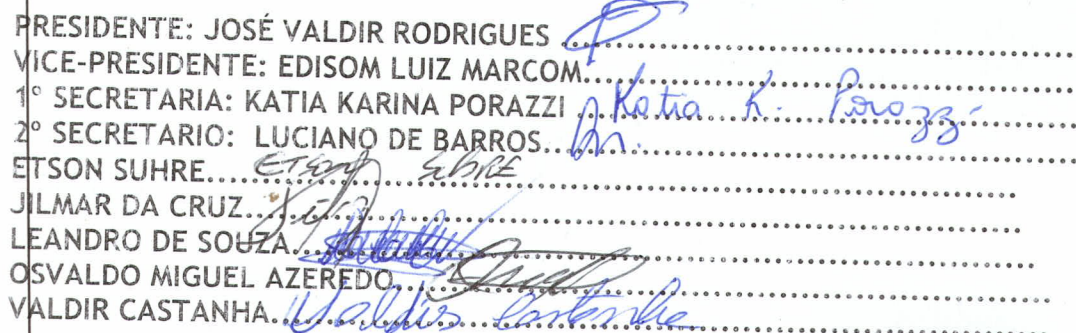 PRESIDENTE: JOSÉ VALDIR RODRIGUES ........................
VICE-PRESIDENTE: EDISOM LUIZ MARCOM........................
1º SECRETARIA: KATIA KARINA PORAZZI ........................ Katia K. Porazzi
2º SECRETARIO: LUCIANO DE BARROS........................
ETSON SUHRE........................ ETSON SUHRE
JILMAR DA CRUZ........................
LEANDRO DE SOUZA........................
OSVALDO MIGUEL AZEREDO........................
VALDIR CASTANHA........................ Valdir Castanha